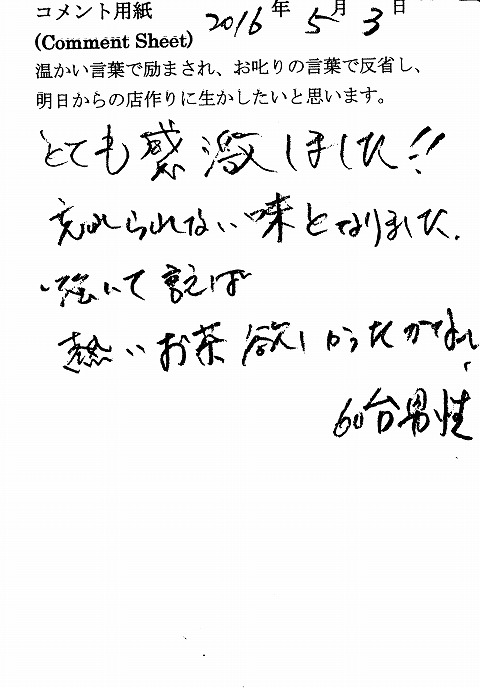 コメント用紙 2016年5月3日
(Comment Sheet)
温かい言葉で励まされ、お叱りの言葉で反省し、
明日からの店作りに生かしたいと思います。
とても感激しました!!
忘れられない味となりました.
強いて言えば
熱いお茶欲しかったかな
60台男性